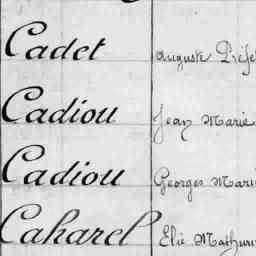 Cadet Auguste
Cadiou Jean Marie
Cadiou Georges Marie
Caharel Elie Mathurin